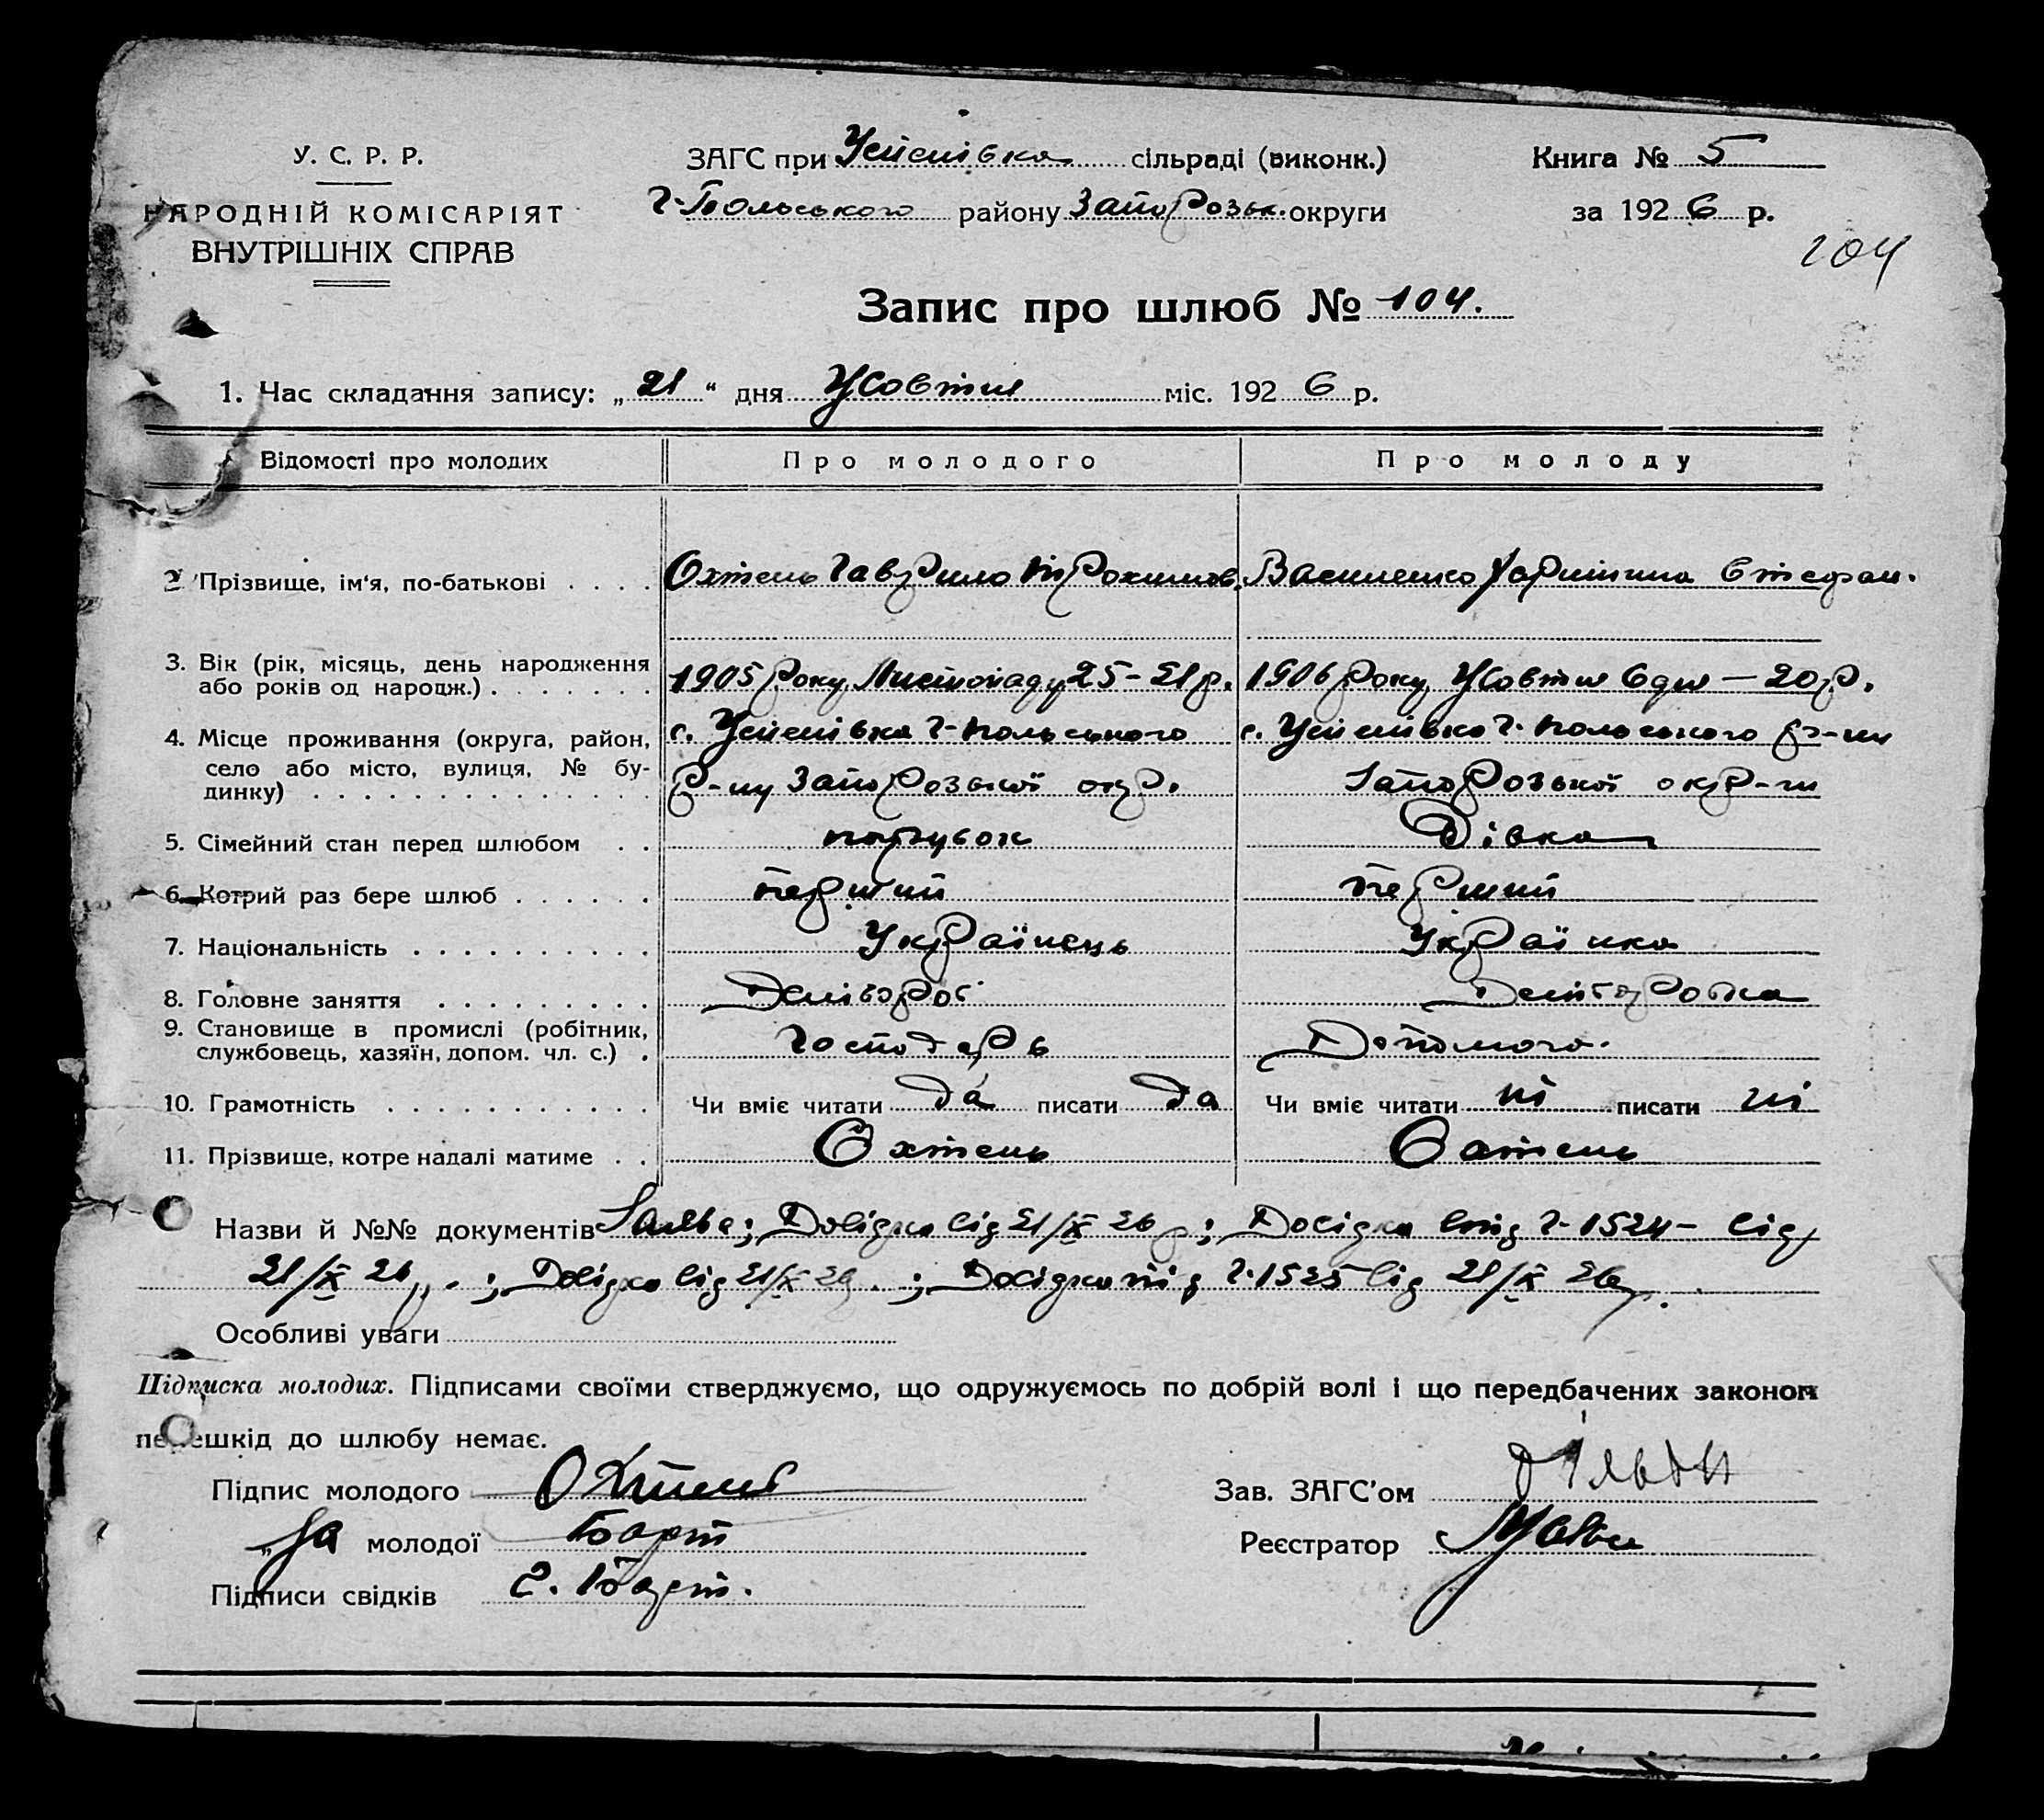 У. С. Р. Р.
НАРОДНІЙ КОМІСАРІЯТ
ВНУТРІШНІХ СПРАВ
ЗАГС при Успенівка сільраді (виконк.)
Г-Польського району Запорозьк. округи
Книга № 5
за 1926 р.
104
Запис про шлюб № 104.
1. Час складання запису: „21“ дня Жовтня міс. 1926 р.
Відомості про молодих Про молодого Про молоду
2 Прізвище, ім‘я, по-батькові . . . . Охтень Гаврило Трохимов. Василенко Степан.
3. Вік (рік, місяць, день народження
або років од нарощж.) . . . . . . . 1905 року Листопаду 25 - 21 р. 1906 року Жовтня 6 дня — 20 р.
4. Місце проживання (округа, район,
село або місто, вулиця, № бу-
динку) . . . . . . . . . . . . . .
с. Успенівка Г-Польського
р-ну Запорозької окр.
с. Успенівка Г. Польського р-ну
Запорозької окр-ги
5. Сімейний стан перед шлюбом . . парубок Дівка
6. Котрий раз бере шлюб . . . . . . перший перший
7. Національність . . . . . . . . . . Українець Українка
8. Головне заняття . . . . . . . . .
9. Становище в промислі (робітник,
службовець, хазяїн, допом. чл. с.) . Господарь Допомога.
10. Грамотність . . . . . . . . . . . Чи вміє читати да писати да Чи вміє читати ні писати ні
11. Прізвище, котре надалі матиме . . Охтень Охтень
Назви й №№ документів Заява; Довідка від 21/X 26 р; Довідка від г. 1524 - від
21/X 26 р.; Довідка від 21/X 26 .; Довідка від г. 1525 від 21/X 26 р.
Особливі уваги
Підписка молодих. Підписами своїми стверджуємо, що одружуємось по добрій волі і що передбачених законом
перешкід до шлюбу немає.
Підпис молодого Охтень
„ За молодої
Підписи свідків
Зав. ЗАГС’ом
Реєстратор